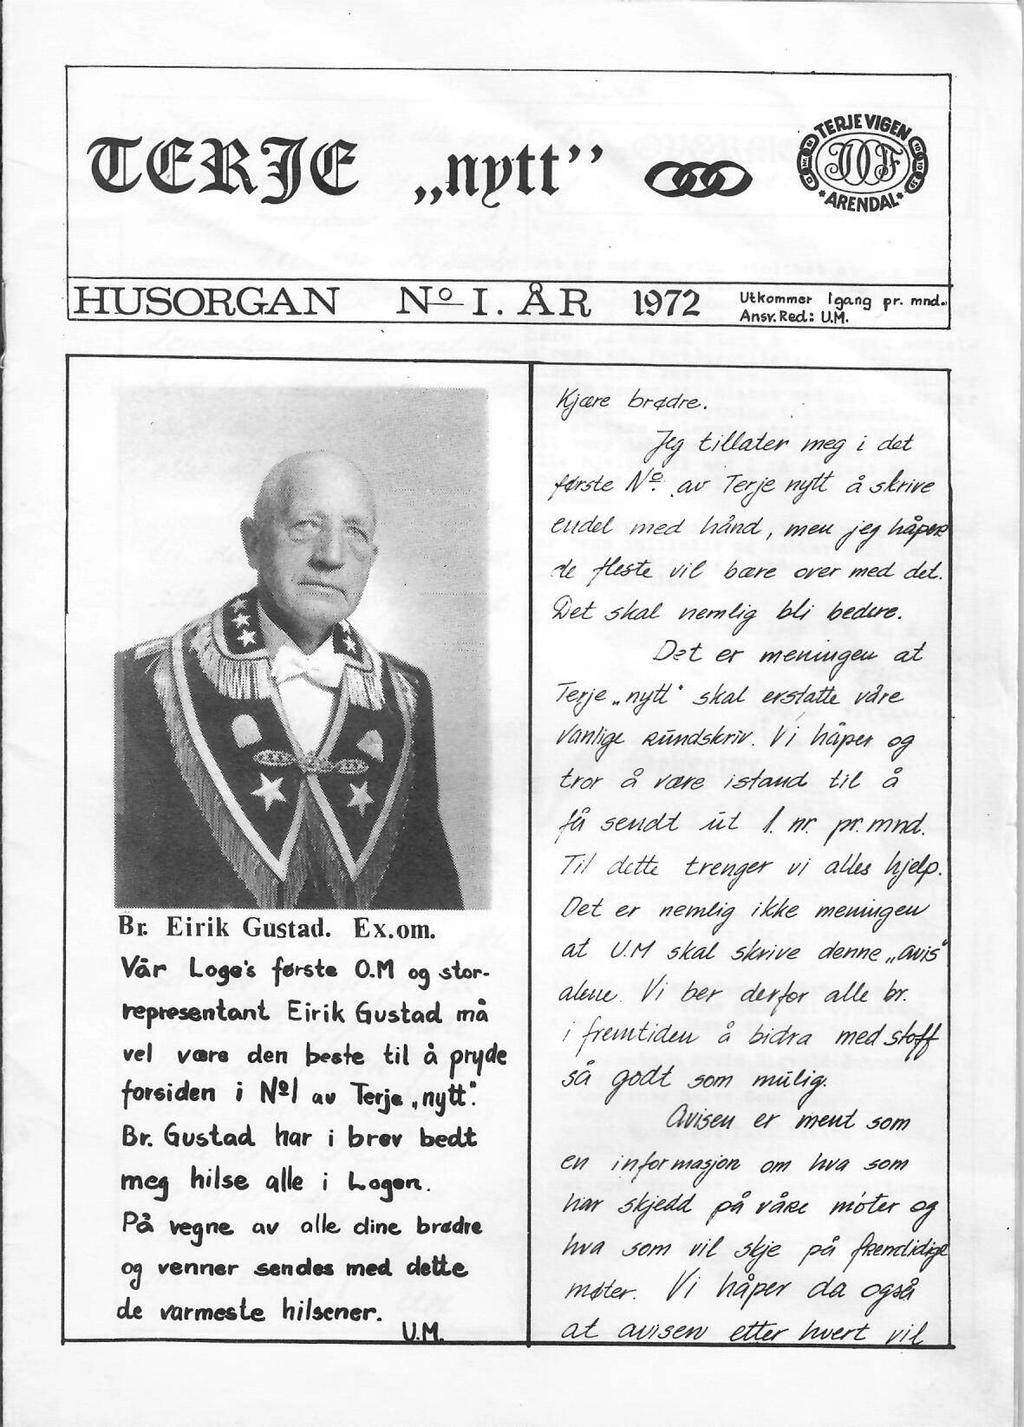 TERJE „nytt”
TERJE VIGEN
ARENDAL
HUSORGAN Nº I. ÅR 1972
Utkommer 1 gang pr. mnd.
Ansv. Red.: U.M.
Br. Eirik Gustad. Ex.om.
Vår Loge's første O.M og stor-
representant Eirik Gustad må
vel være den beste til å pryde
forsiden i Nº1 av Terje „nytt".
Br. Gustad har i brev bedt
meg hilse alle i Logen.
På vegne av alle dine brødre
og venner sendes med dette
de varmeste hilsener.
U.M.
Kjære brødre.
Jeg tillater meg i det
første Nº. av Terje nytt å skrive
endel med hånd, men jeg håper
de fleste vil bære over med det.
Det skal nemlig bli bedere.
Det er meningen at
Terje „nytt" skal erstatte våre
vanlige rundskriv. Vi håper og
tror å være istand til å
få sendt ut 1. nr. pr. mnd.
Til dette trenger vi alles hjelp.
Det er nemlig ikke meningen
at U.M skal skrive denne „avis"
alene. Vi ber derfor alle br.
i fremtiden å bidra med stoff
så godt som mulig.
Avisen er ment som
en informasjon om hva som
har skjedd på våre møter og
hva som vil skje på fremtidige
møter. Vi håper da også
at avisen etter hvert vil